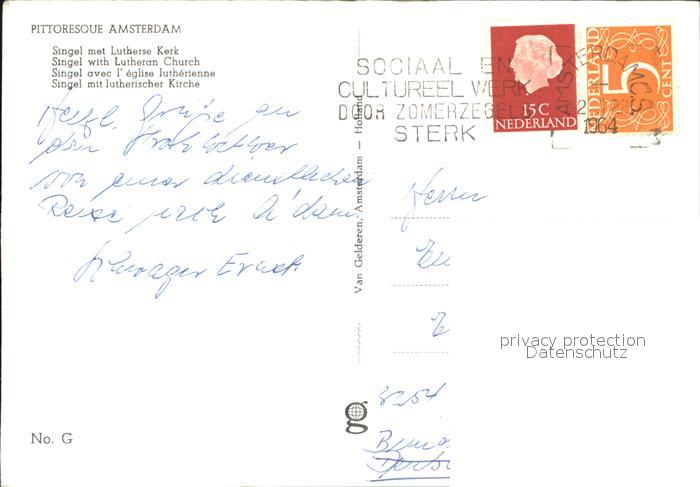 PITTORESQUE AMSTERDAM
Singel met Lutherse Kerk
Singel with Lutheran Church
Singel avec l'église luthérienne
Singel mit lutherischer Kirche
SOCIAAL EN
CULTUREEL WERK
DOOR ZOMERZEGELS
STERK
AMSTERDAM C.S.
1964
15 C
NEDERLAND
NEDERLAND
5
CENT
Herzl. Grüße an
den
von einer dienstlichen
Reise nach A'dam
Schwager Ernst.
Van Gelderen, Amsterdam — Holland
Herrn
privacy protection
Datenschutz
No. G